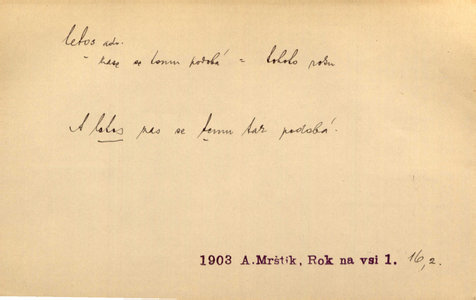 letos adv.
se tomu podobá = tohoto roku
A letos zas se tomu tak podobá.
1903 A.Mrštík, Rok na vsi 1. 16,2.